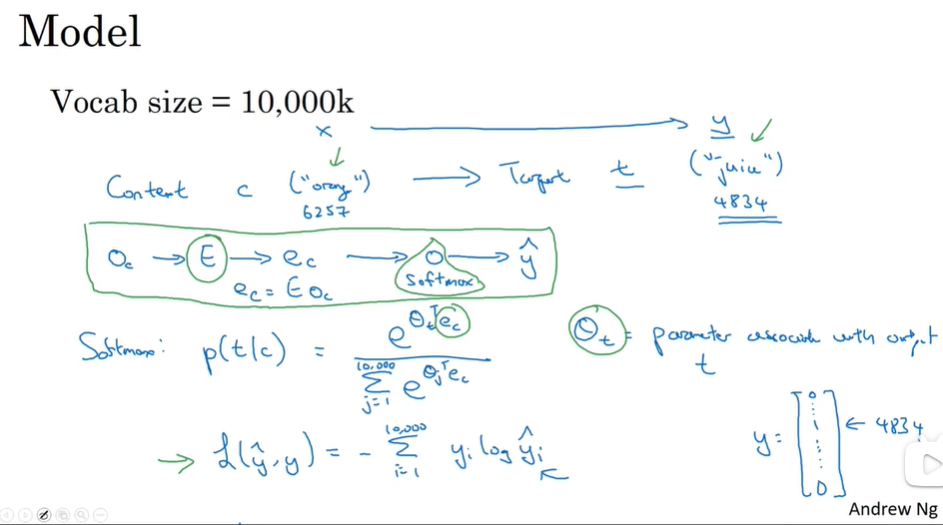 Model
Vocab size = 10,000k
x → y
Content c ("orange") → Target t ("juice")
6257 4834
O_c → E → e_c → O → ŷ
Softmax
e_c = E O_c
Softmax: p(t|c) = e^{θ_t^T e_c} / Σ_{j=1}^{10,000} e^{θ_j^T e_c}
θ_t = parameter associated with output t
→ ℒ(ŷ, y) = - Σ_{i=1}^{10,000} y_i log ŷ_i
y = [0 ⋮ 1 ⋮ 0] ← 4834
Andrew Ng